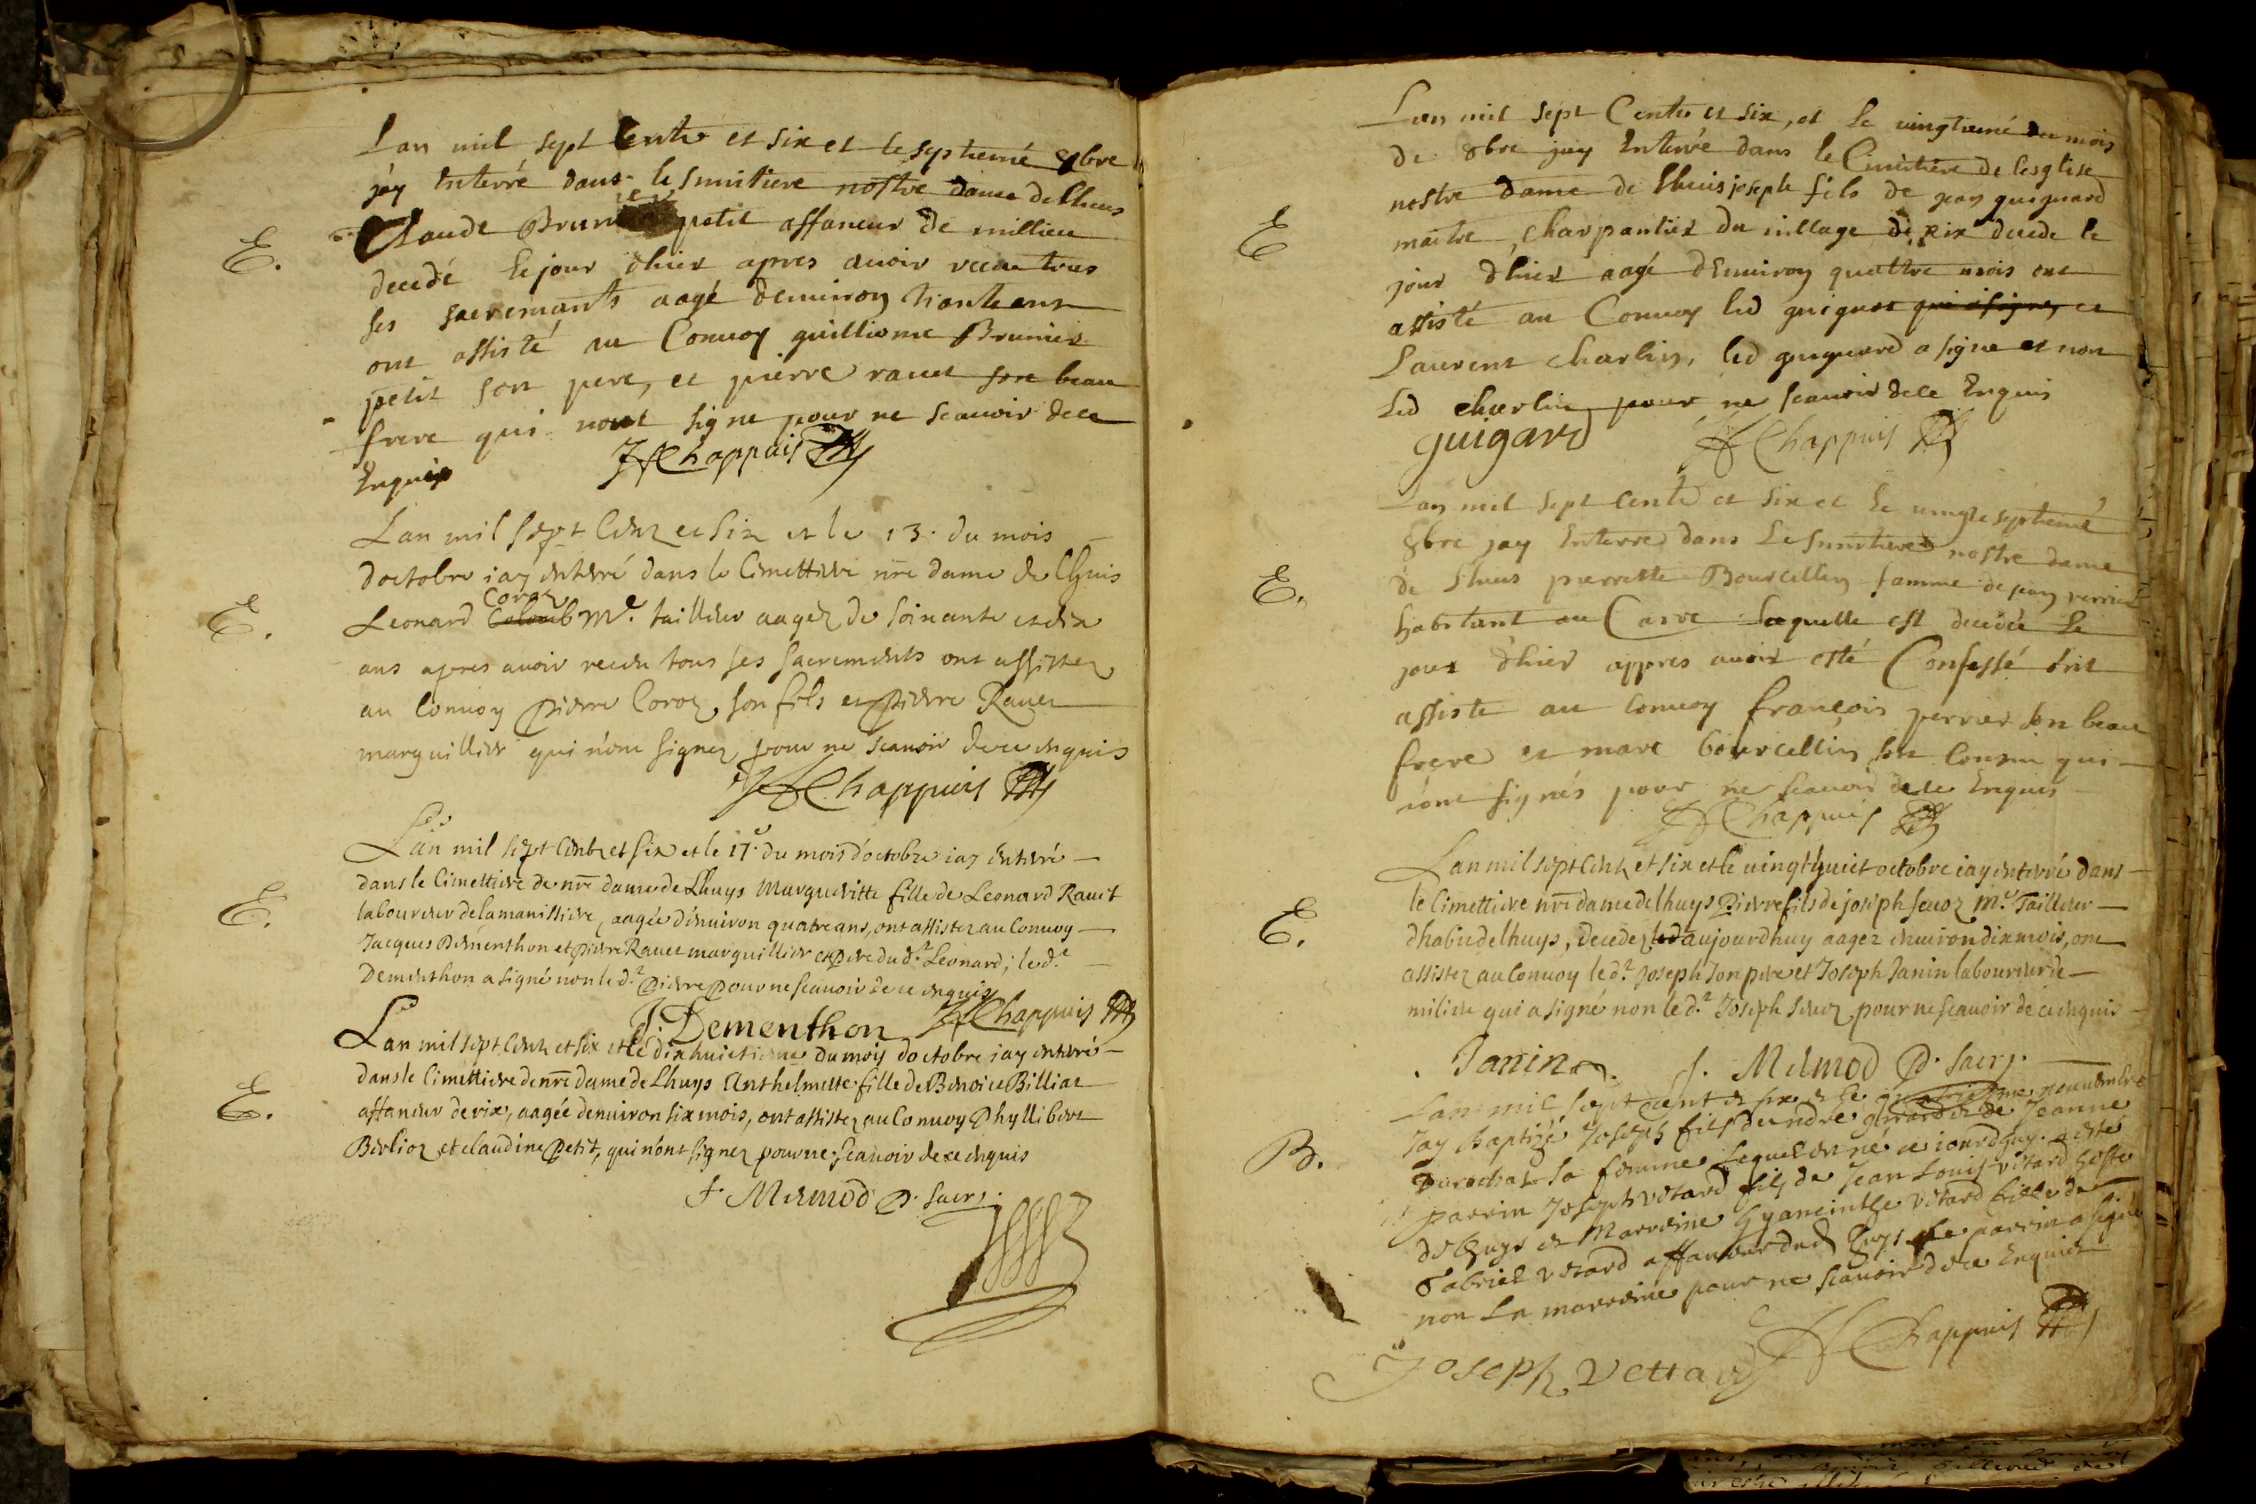 Lan mil sept Cents et six et le septieme 8bre
jay Enterré dans le simitiere nostre dame de lhuis
Claude Brunier petit affaneur de millieu
decedé le jour dhier apres avoir receu tous
ses sacremants aagé denviron trante ans
ont assisté au Convoy guilliome Brunier
petit son pere, et pierre ravet son beau
frere qui nont signe pour ne scavoir de ce
Enquis
Chappuis
E.
Lan mil sept Cent et six et le 13. du mois
doctobre iay enterré dans le Cimettiere nre dame de Lhuis
Coroz
Leonard Colomb Me. tailleur aagez de soixante et dix
ans apres avoir receu tous ses sacrements ont assistez
au Convoy pierre Coroz, son fils et pierre Ravet
marguillier qui nont signez pour ne scavoir de ce enquis
Chappuis
E.
Lan mil sept Cents et six et le 17e. du mois d'octobre iay enterré
dans le Cimettiere de nre dame de Lhuys Margueritte fille de Leonard Ravet
laboureur de lamanissiere, aagée d'environ quatre ans, ont assistez au Convoy
Jacques Dementhon et pierre Ravet marguillier et pere du d.t Leonard; le d.t
Dementhon a signé non le d.t pierre pour ne scavoir de ce enquis
J. Dementhon Chappuis
E.
Lan mil sept Cents et six et le dixhuictieme du mois doctobre iay enterré
dans le Cimettiere de nre dame de Lhuys Anthelmette fille de Benoict Billiat
affaneur de rix, aagée denviron six mois, ont assistez au Convoy Phyllibert
Berlioz et claudine petit, qui nont signez pour ne scavoir de ce enquis
E.
J. Mermod p. sacr.
Lan mil sept Cents et six, et le vingtiemé du mois
de 8bre jay Enterré dans le Cimitiere de lesglise
nostre dame de lhuis joseph fils de jean guignard
maitre charpantier du village de rix decede le
jour dhier aagé dEnviron quattre mois ont
assisté au Convoy led guignar qui a signez et
Laurent charlin, led guignard a signe et non
Led charlin pour ne scavoir de ce Enquis
guigard Chappuis
E
Lan mil sept cents et six et le vingt septiemé
8bre jay Enterre dans Le simitiere nostre dame
de Lhuis pierrette Bourcellin famme de jean perrier
habitant au Carre laquelle est decedée le
jour dhier appres avoir esté Confessé ont
assisté au Convoy françois perrier son beau
frere et marc bourcellin son Cousin qui
nont signés pour ne scavoir de ce Enquis
Chappuis
E.
Lan mil sept cents et six et le vingt huict octobre iay enterré dans
le Cimettiere nre dame de lhuys pierre fils de joseph Me. Tailleur
dhabit de lhuys, decedez led aujourdhuy aagez environ dix mois, ont
assistez au Convoy le d.t joseph son pere et Joseph Janin laboureur de
milieu qui a signé non le d.t Joseph pour ne scavoir de ce enquis
E.
Janin J. Mermod p. sacr.
Lan mil sept cent et six et le quatriesme novembre
Jay Baptizé Joseph fils dandre et de Jeanne
sa femme lequel est né ce iourdhuy a esté
parrin Joseph vetard fils de Jean Louis vetard hoste
de lhuys et Marreine hyaneinthe vetard fille de
Gabriel vetard affaneur dud lhuys le parrin a signé
non La marreine pour ne scavoir de ce Enquise
B.
Joseph vettard Chappuis